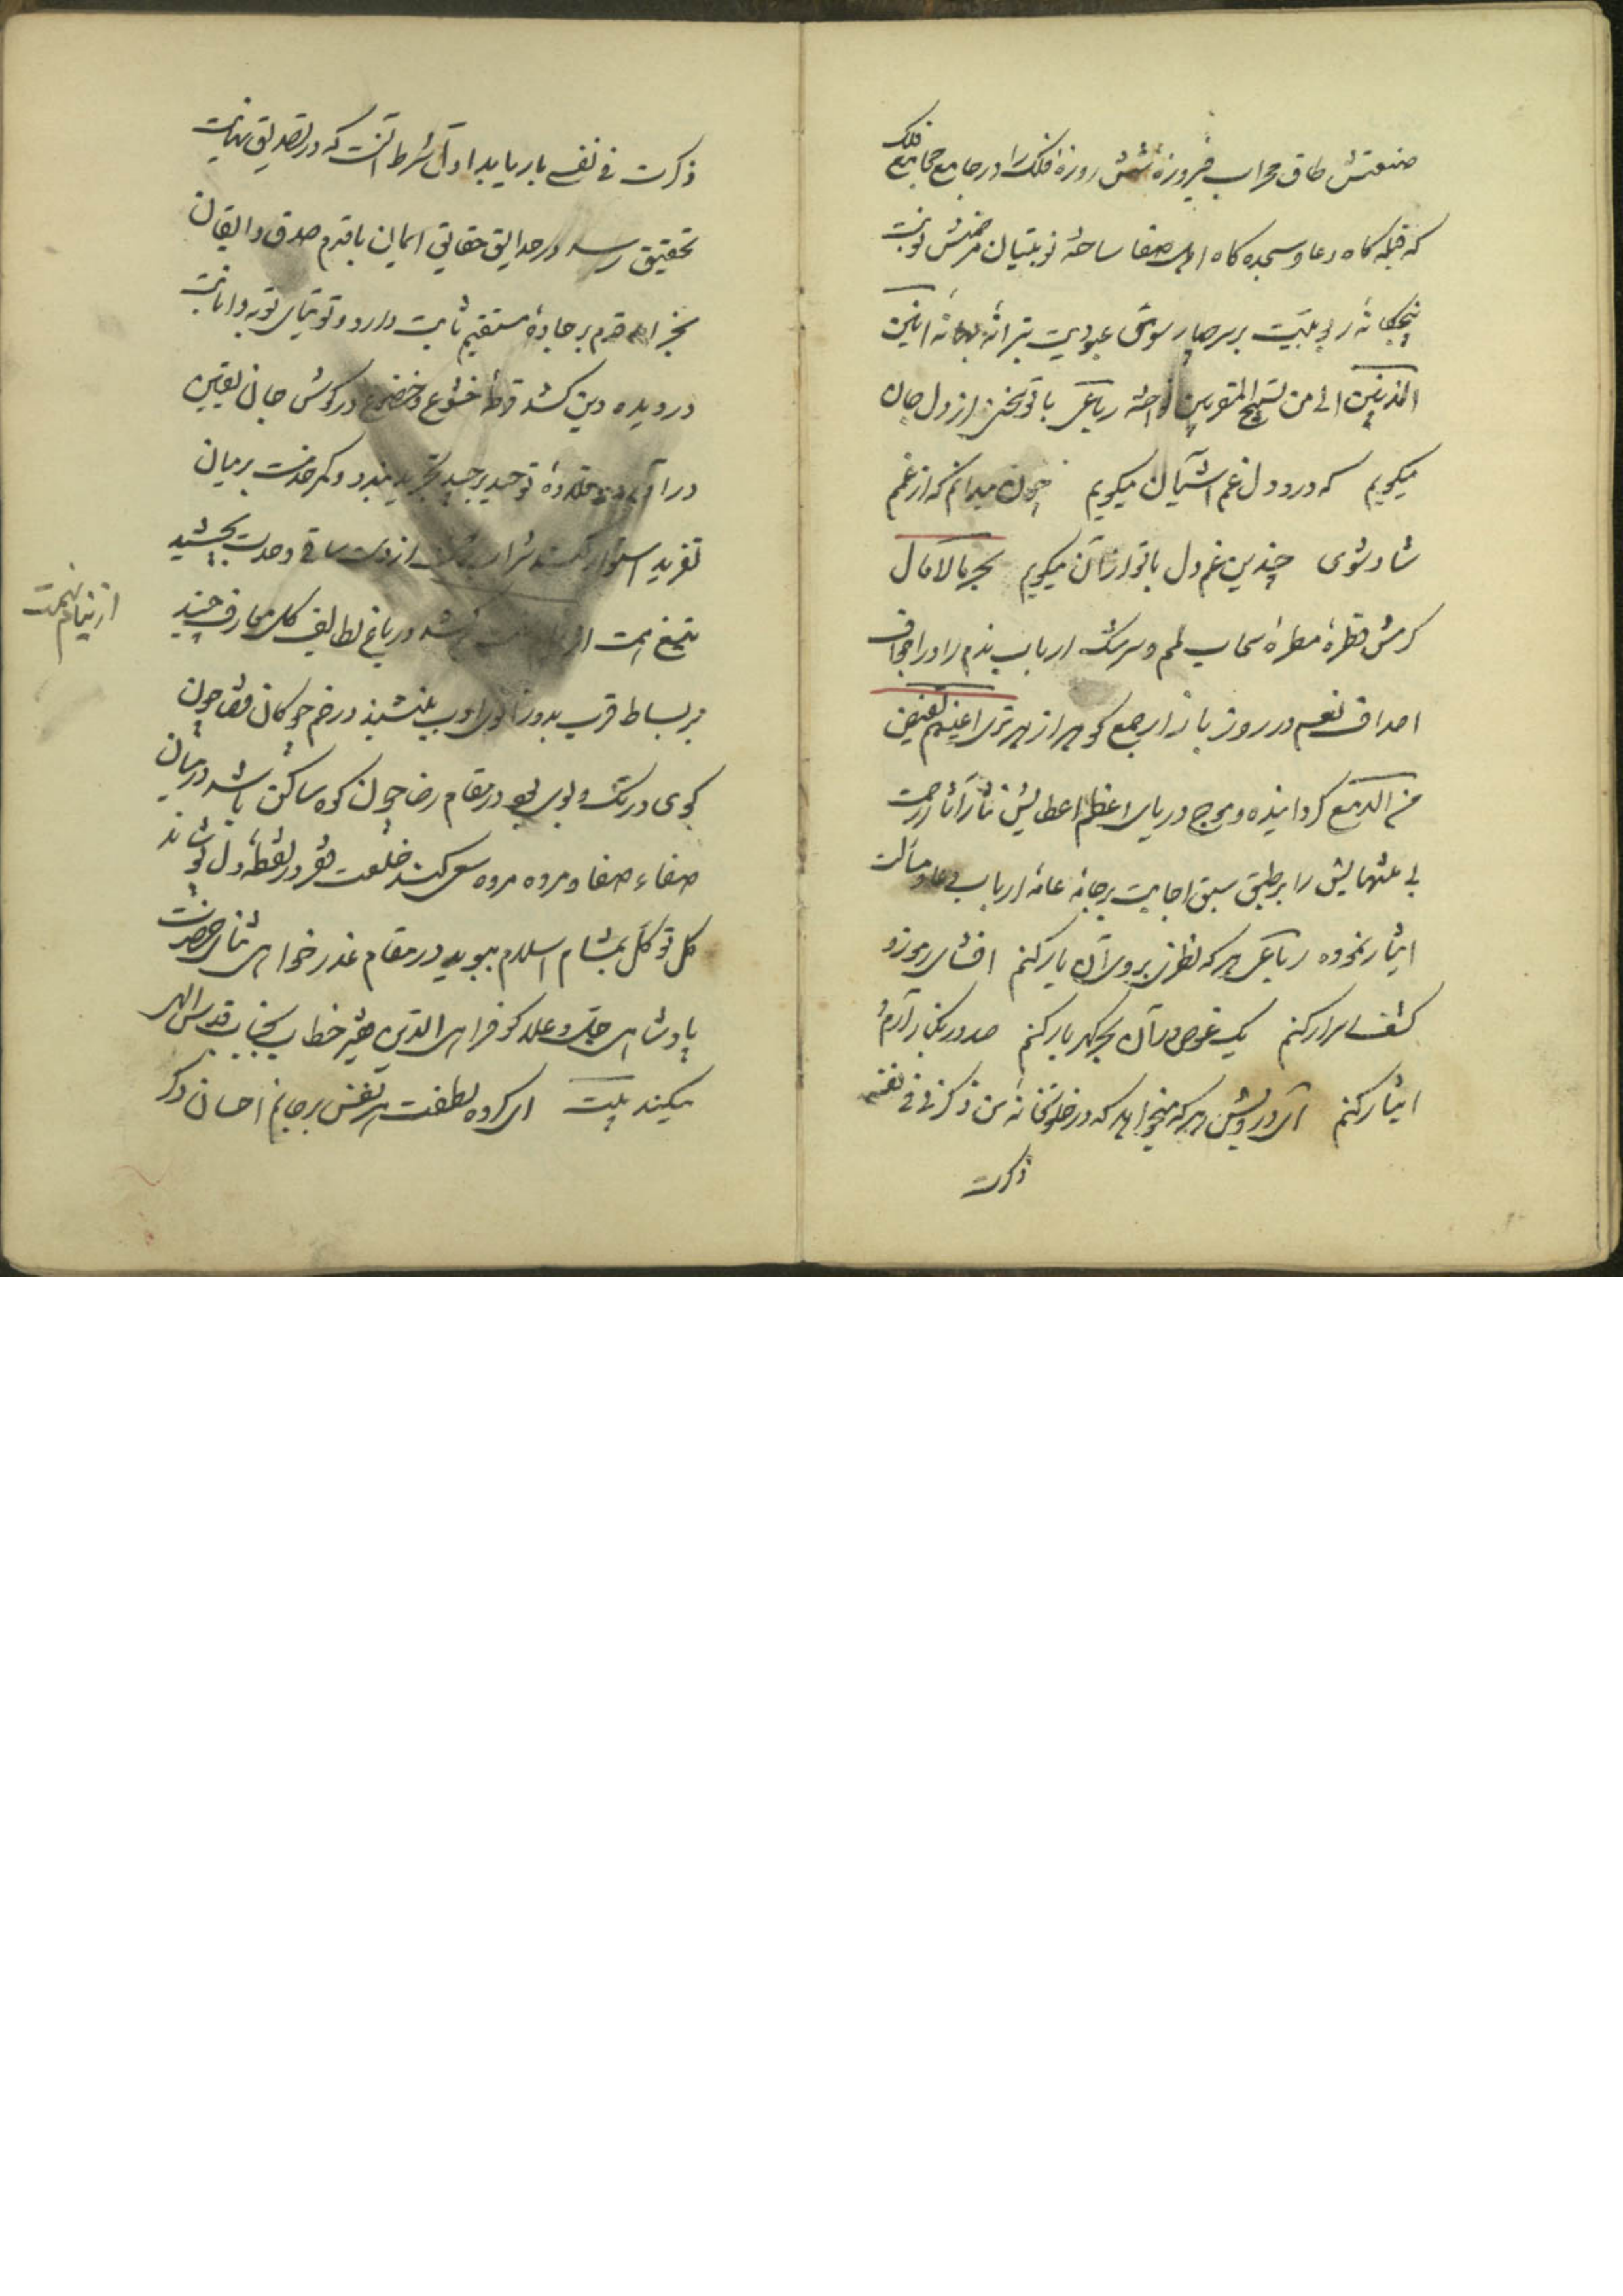 صنعتش طاق محراب فیروزهٔ شش روزهٔ افلاک را در جامع مجامع فلک
که قبله کاه دعا و سجده کاه اهل صفا ساخته نوبتیان فرضش نوبت
پنجکانه ربوبیت بر سر چار سوی عبودیت بترانه انین
المذنبین الی من تسبیح المقربین نواخته رباعی با تو سخن از دل جان
میکویم که درد دل غم آشیان میکویم چون میدانم که از غمم
شاد شوی چندین غم دل با تو از آن میکویم بحر مالامال
کرمش قطرهٔ مطرهٔ سحاب لم و سرشک ارباب ندم را در اجواف
اصداف نعم در روز بازار جمع کوهر از هر تری اعینهم تفیض
من الدمع کردانیده و موج دریای اعظم اعطایش آثار رحمت
بی منتهایش را بر طبق سبق اجابت بر جان عامهٔ ارباب دعا و مسالت
ایثار نموده رباعی هر که نظری بروی آن یار کنم افشای رموز و
کشف اسرار کنم یک غوص در آن بحر کهربار کنم صد در بکنار آرم و
ایثار کنم آی درویش هر که میخواهد که در خلوتخانهٔ من ذکرنی فی نفسه
ذکرت
ذکرت فی نفسی بار یابد اول شرط آنست که در تصدیق بنهایت
تحقیق رسد و در حدایق حقایق ایمان با قدم صدق و ایقان
بخرامد قدم بر جادهٔ مستقیم ثابت دارد و توتیای توبه و انابت
در دیده دین کشد قرطهٔ خشوع و خضوع در کوش جان یقین
درآرد قلادهٔ توحید بر جید تجرید بندد و کمر خدمت بر میان
تفرید استوار کند شراب از دست ساقی وحدت بچشید
تیغ همت از در باغ لطایف کل معارف چیند
از نیام نهمت
بر بساط قرب بدو زانوی ادب بنشیند در خم چوکان قضا چون
کوی در تک و پوی بود در مقام رضا چون کوه ساکن باشد در میان
صفاء صفا و مروه مروه سعی کند خلعت فقر در نقطهٔ دل پوشاند
کل توکل بمشام اسلام ببوید در مقام عذر خواهی ثنای حضرت
پادشاهی جل و علا کوید فراهی الذین هبیر خطاب بجناب قدس الهی
میکند بیت ای کرده لطفت هر نفس بر جانم احسان دکر